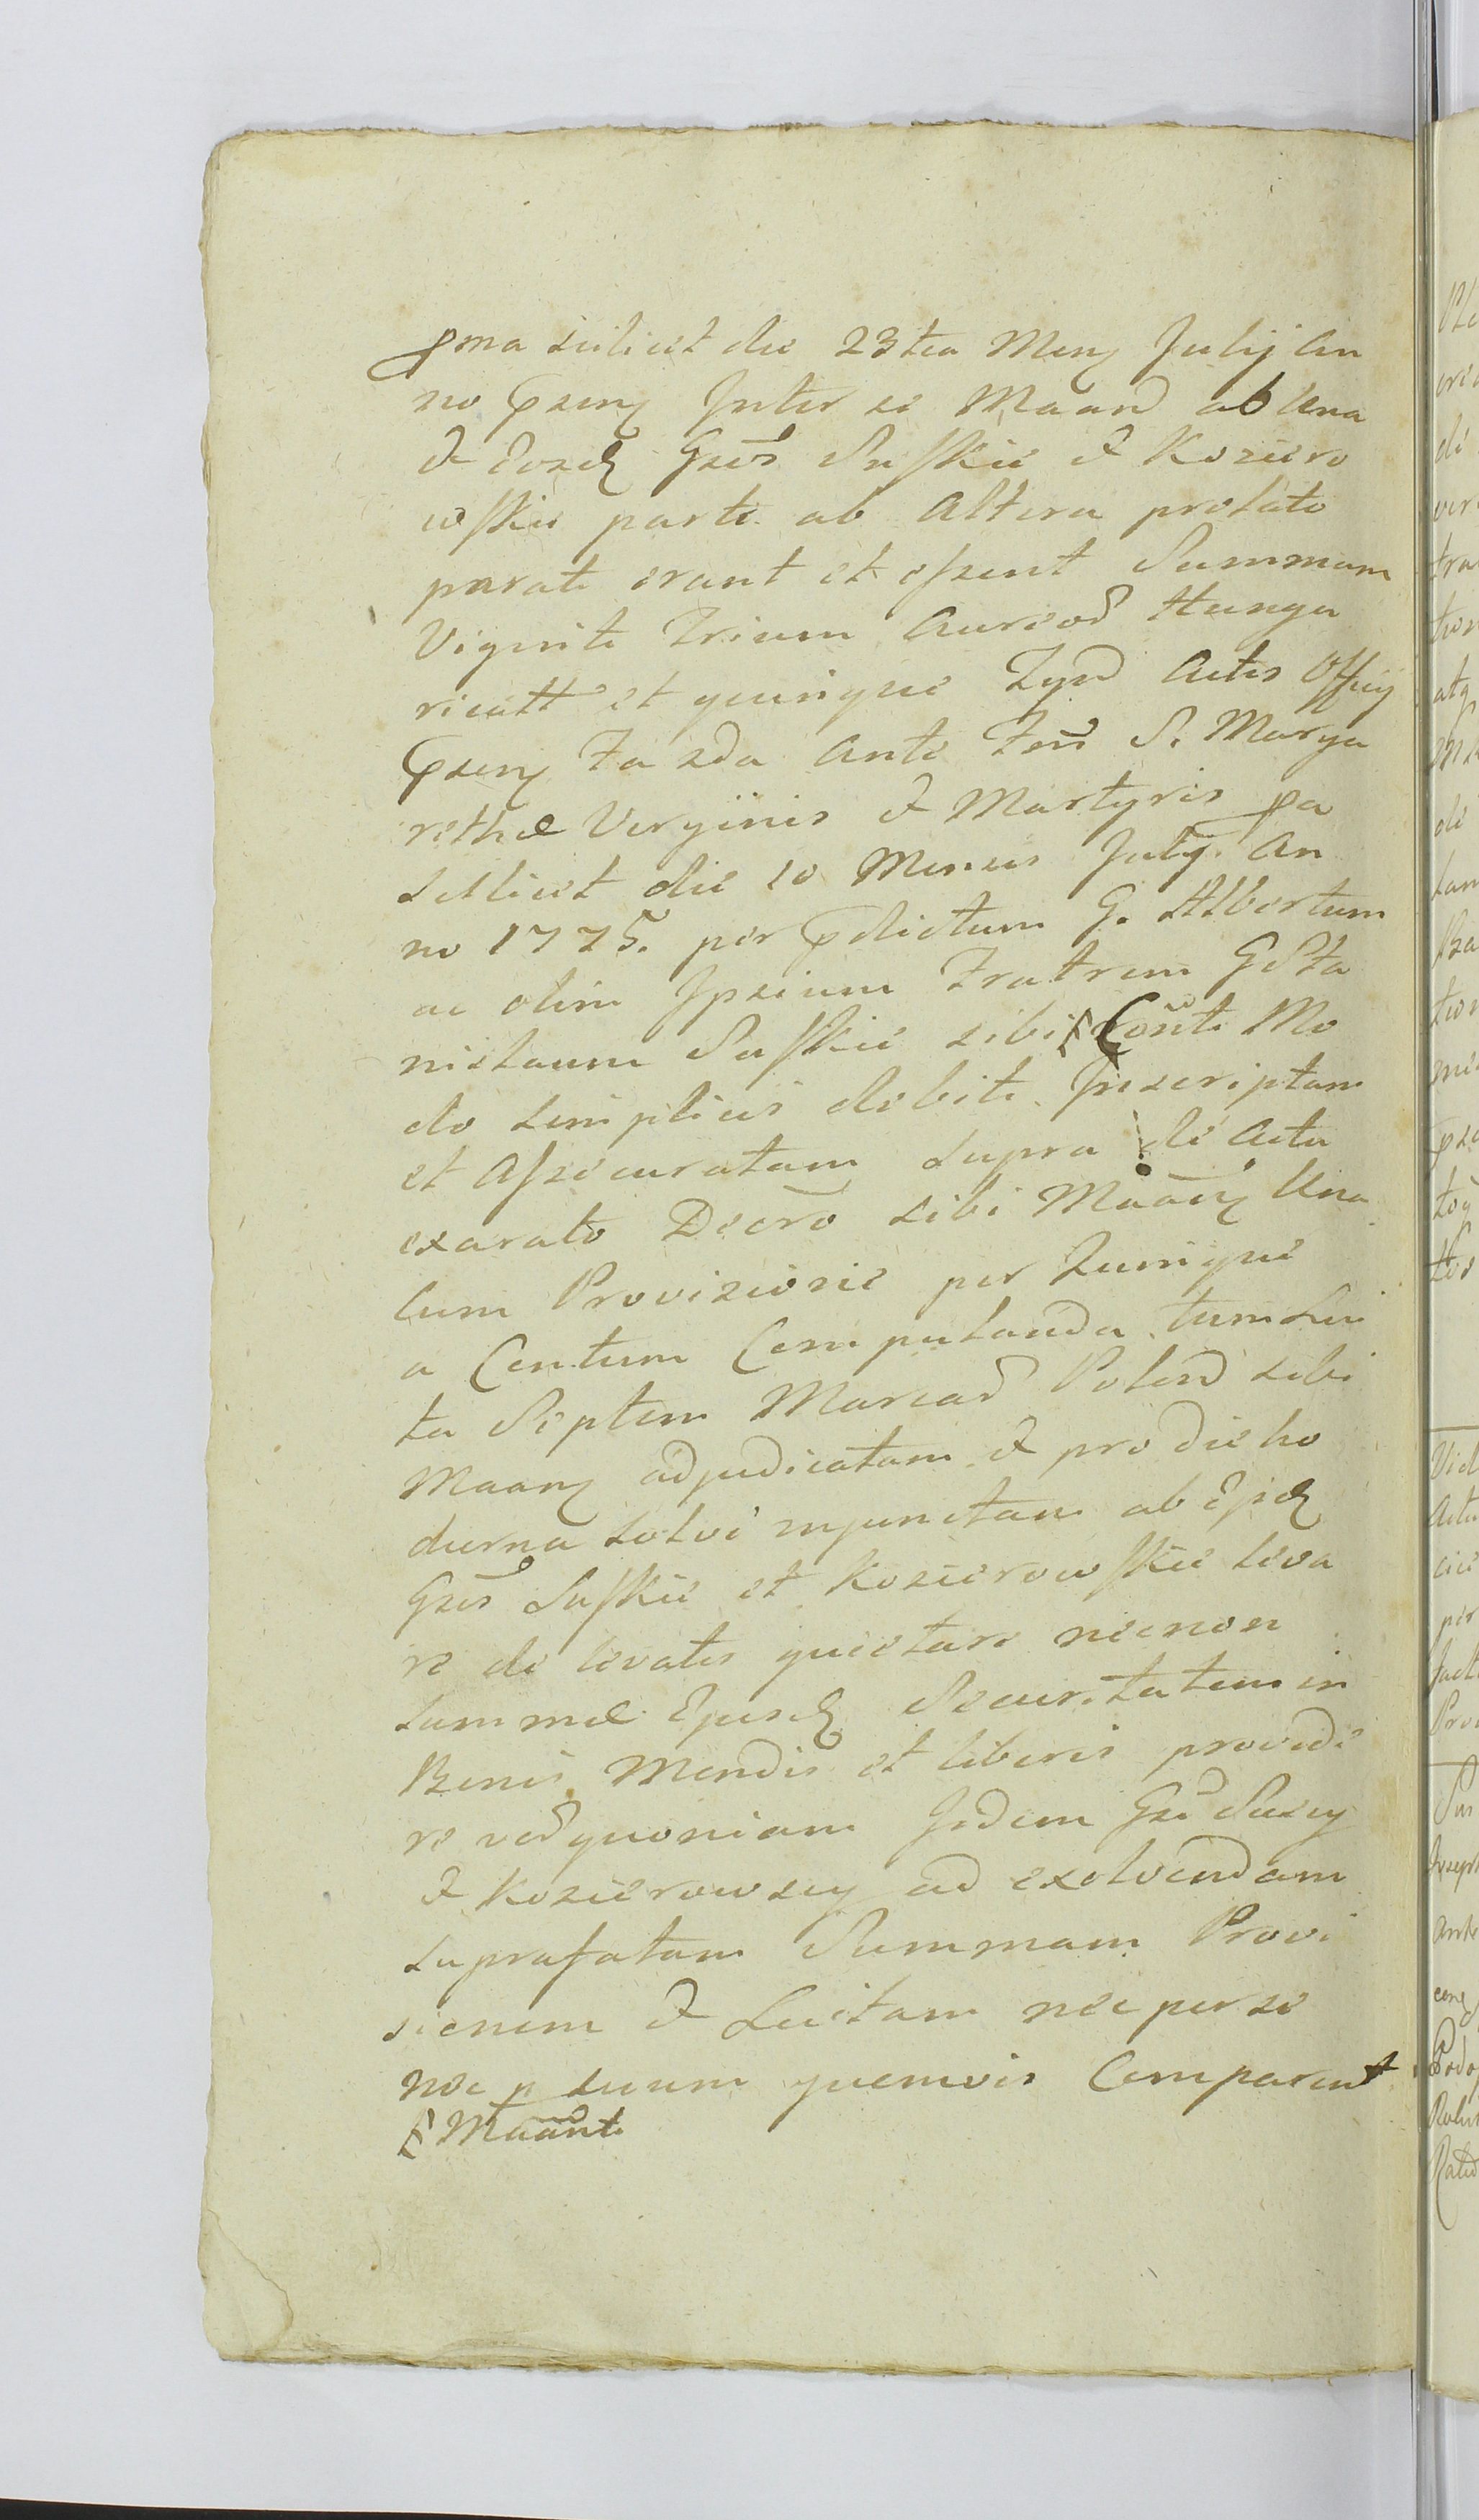 pma scilicet die 23tia Mens Julij An
no psens Inter se Maand ab Una
& Eosd Gsos Suskie & Koziero
wskie parte ab Altera prolato
parati erant et essent Summam
Viginti Trium Aureod Hunga
ricall et quinque Tynd Actis Offij
psens Fa 2da Ante Fes S. Marga
rethæ Verginis & Martyris pa
scilicet die 10 Mensis July An
no 1775. per pdictum G. Albertum
ac olim Ipsium Fratrem G Sta
nislaum Suskie sibi Conti Mo
do simplicis debiti Inscriptam
et Assecuratam supra de Actu
exarato Decro sibi Maans Una
cum Provisione per quinque
a Centum Computanda tum Lui
ta Septem Marcad Polind sibi
Maans adjudicatam & pro die ho
dierna solvi injunctam ab Eisd
Gsis Suskie et Kozierowskie leva
re de levatis quietare necnon
summæ Ejusd Securitatem in
Benis Mundis et liberis provide
re ved quoniam Iidem Gsi Suscy
& Kozierowscy ad exolvendam
suprafatam Summam Provi
sionem & Luitam nec per se
nec p suum quemvis Comparent
Maanti